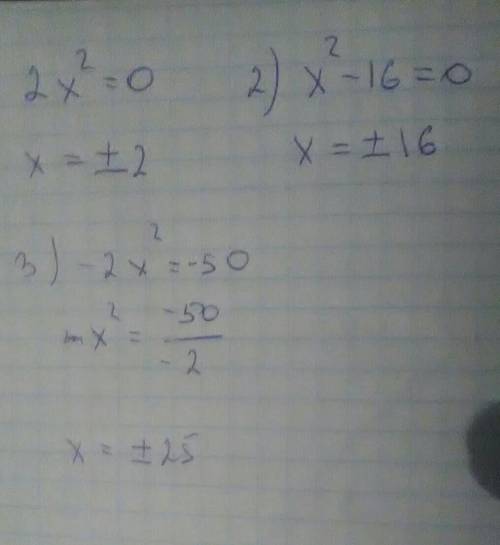 2x² = 0
x = ±2
2) x² - 16 = 0
x = ±16
3) -2x² = -50
x² = -50/-2
x = ±25